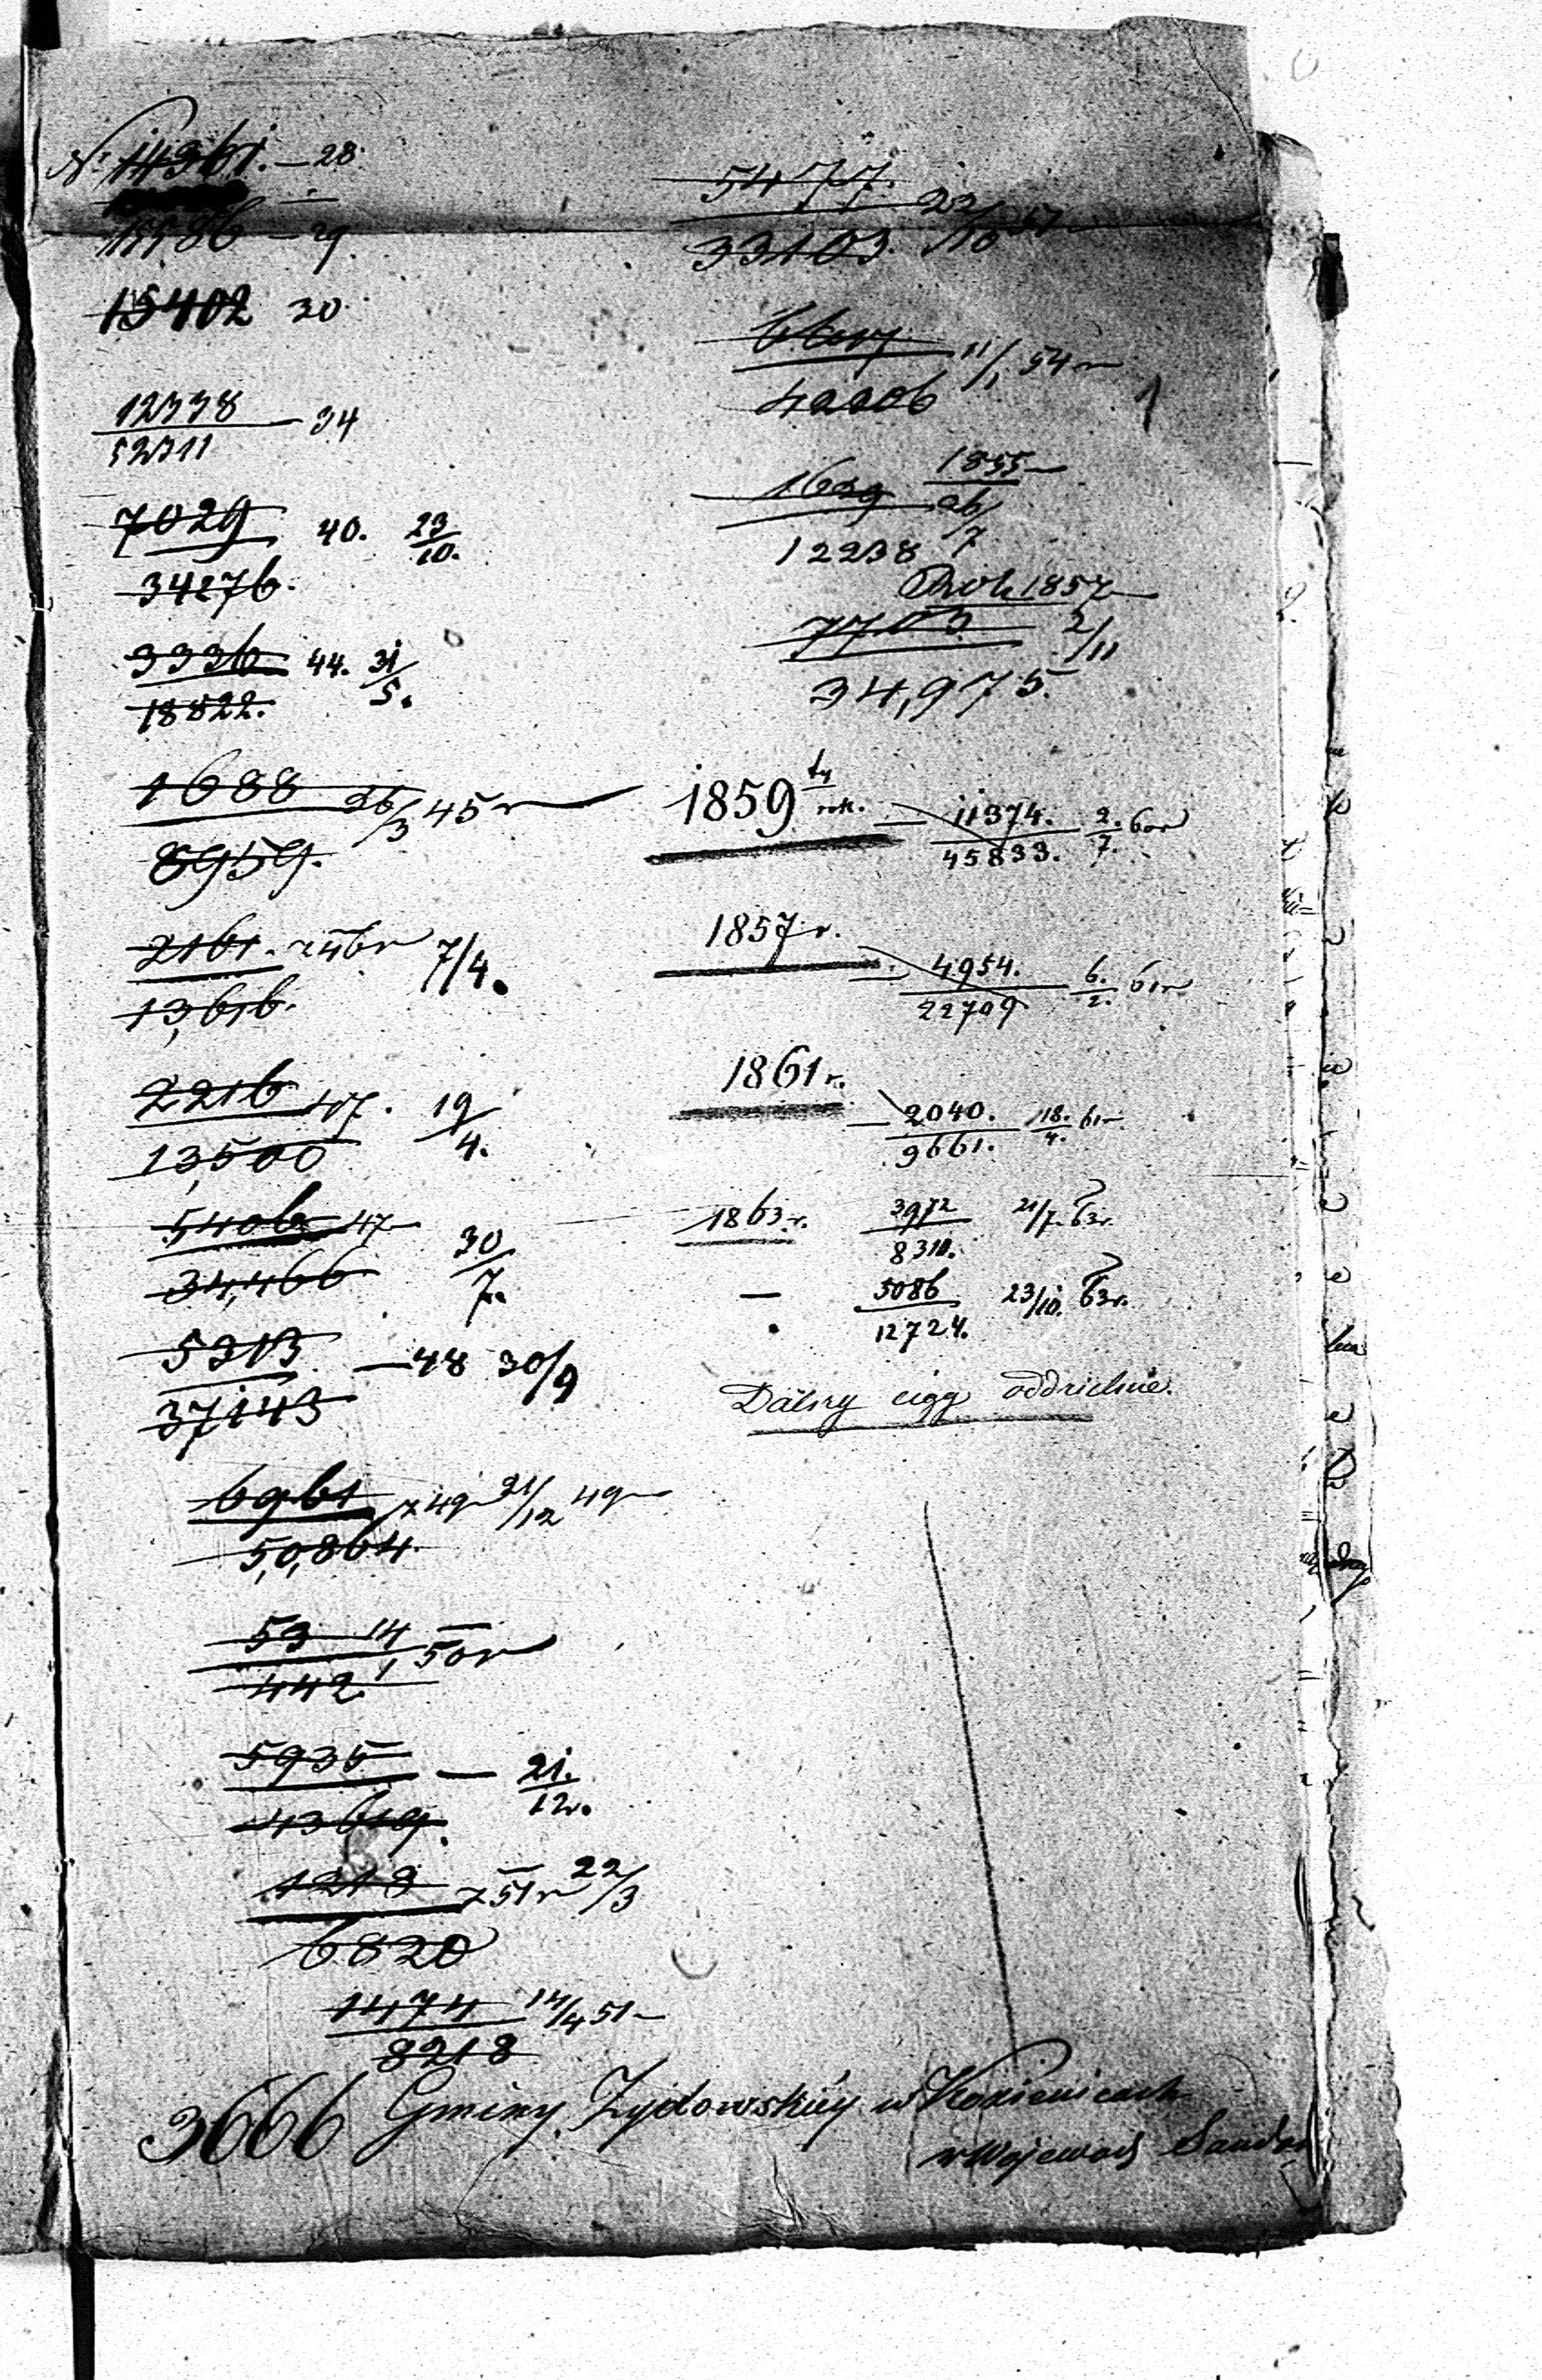 N. 14361. — 28
15586 — 29
15402 30
12338 — 34
52311
7029 40. 23/10.
34276.
3336 44. 31/5.
18822.
1688 26/3 45 r
8959.
2161. z 46 r 7/4.
13,616.
2216 47. 19/4.
13,500
5406 47 30/7.
34,466
5313 — 48 30/9
37143
6961 z 49 21/12 49
50,864.
53 14/1 50 r
442.
5935 — 21./12.
43619.
1213 z 51 r 22/3
6820
1474 14/4 51
8218
5477. 22/10
33103.
11/1 54 r
1
1639 1855
26/7
12238
Rok 1857
7703 2/11
34,975.
1859 ty rok. — 11374. 2./7. 60 r
45833.
1857 r. — 4954. 6./2. 61 r
22709.
1861 r. — 2040. 18./4. 61 r
9661.
1863 r. 3972 21/7. 63 r.
8310.
— 5086 23/10. 63 r.
12724.
Dalszy ciąg oddzielnie.
3666 Gminy Żydowskiéy w Kozienicach
w Wojewodz Sandom